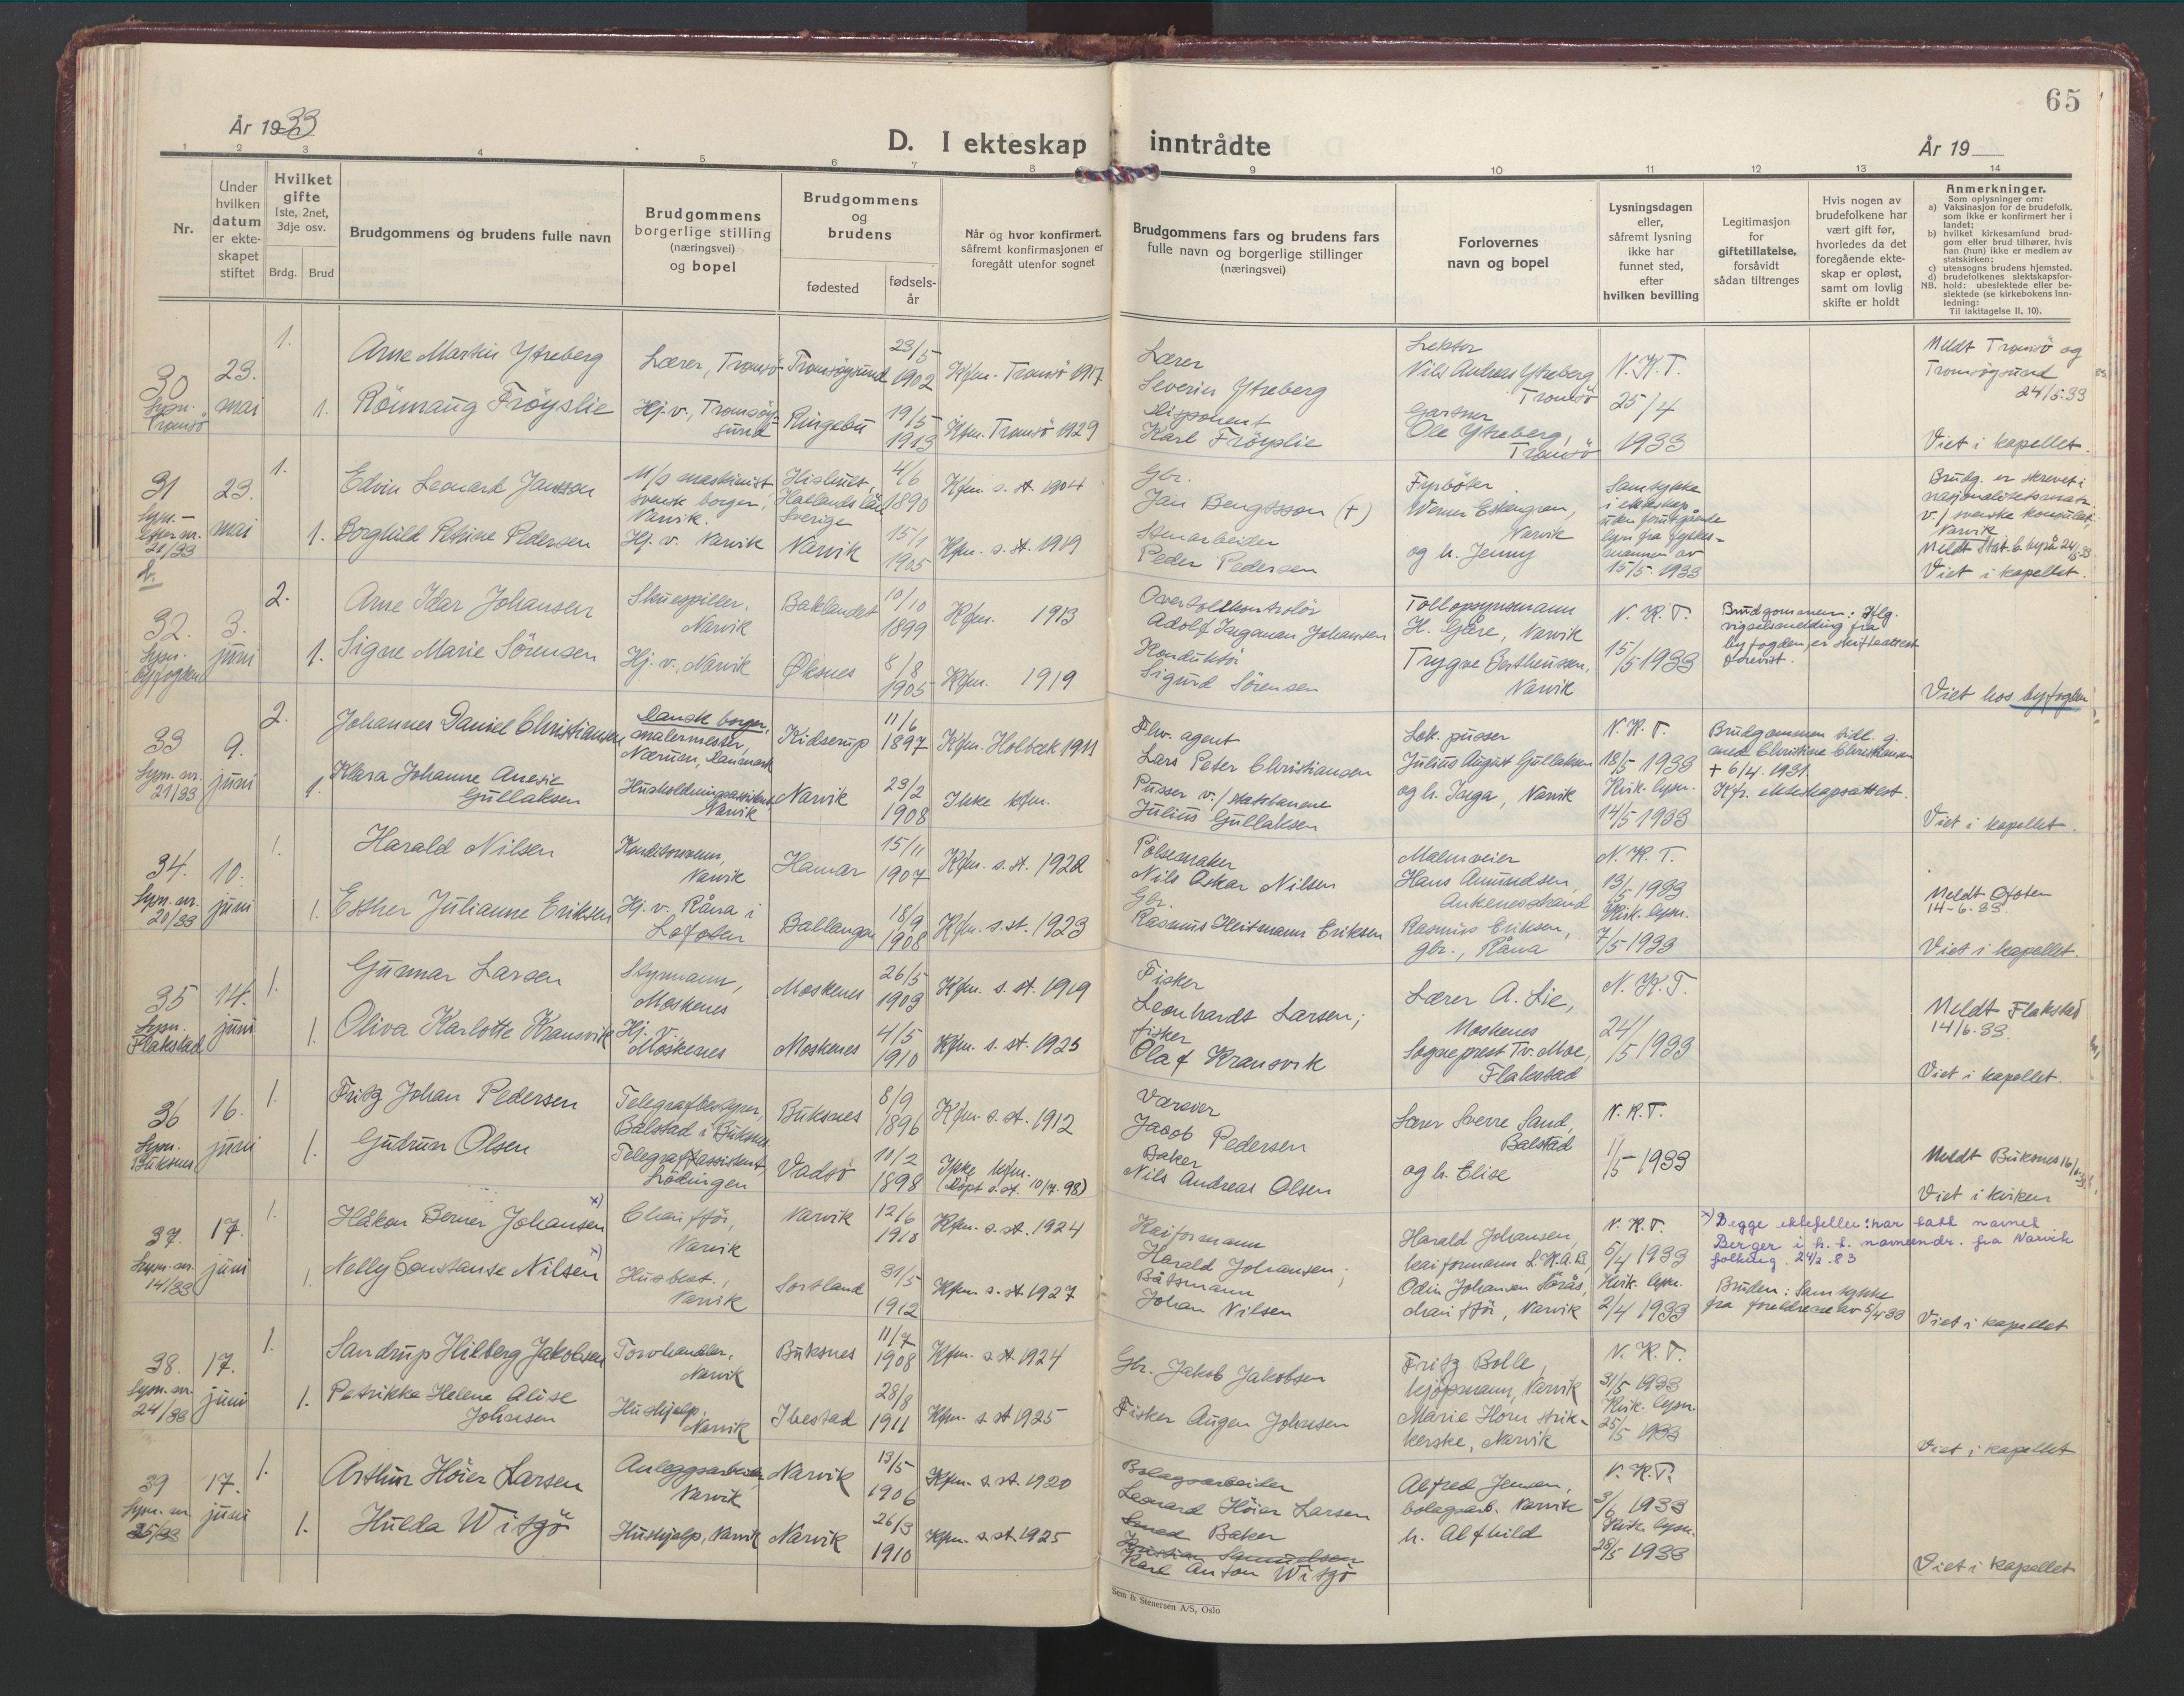 65
År 1933
D. I ekteskap inntrådte
År 19
1 2 3 4 5 6 7 8 9 10 11 12 13 14
Nr.
Under hvilken datum er ekte-skapet stiftet
Hvilket gifte
1ste, 2net, 3dje osv.
Brdg. Brud
Brudgommens og brudens fulle navn
Brudgommens borgerlige stilling (næringsvei) og bopel
Brudgommens og brudens
fødested
fødsels-år
Når og hvor konfirmert, såfremt konfirmasjonen er foregått utenfor sognet
Brudgommens fars og brudens fars fulle navn og borgerlige stillinger (næringsvei)
Forlovernes navn og bopel
Lysningsdagen eller, såfremt lysning ikke har funnet sted, efter hvilken bevilling
Legitimasjon for giftetillatelse, forsåvidt sådan tiltrenges
Hvis nogen av brudefolkene har vært gift før, hvorledes da det foregående ekte-skap er opløst, samt om lovlig skifte er holdt
Anmerkninger.
Som oplysninger om:
a) Vaksinasjon for de brudefolk. som ikke er konfirmert her i landet;
b) hvilket kirkesamfund brud-gom eller brud tilhører, hvis han (hun) ikke er medlem av statskirken;
c) utensogns brudens hjemsted.
d) brudefolkenes slektskapsfor-hold: ubeslektede eller be-slektede (se kirkebokens inn-ledning:
NB.
Til iakttagelse II. 10).
30 Lysn. Tromsö
23. mai
1.
Arne Martin Ytreberg
Lærer, Tromsö
Tromsöysund
23/5 1902
Kfm. Tromsö 1917
Lærer
Severin Ytreberg
Lektor
Nils Andreas Ytreberg
Tromsö
N.K.T.
25/4
1933
Meldt Tromsö og
Tromsöysund
24/5.33
1. Rönnaug Fröyslie
Hj. v., Tromsöy-
sund
Ringebu
19/5 1913
Kfm. Tromsö 1929
Disponent
Karl Fröyslie
Gartner
Ole Ytreberg,
Tromsö
Viet i kapellet.
31 Lysn.-
efter nr.
21/33
23. mai
1.
Edvin Leonard Jansson
M/s maskinist
svensk borger,
Narvik.
Hishult,
Hallands län
Sverige
4/6 1890
Kfm. s. st. 1904
Gbr.
Jan Bengtsson (+)
Fyrböter
Werner Eskengren,
Narvik
Samtykke
i ekteskap
uten forutgående
lysn fra fylkes-
mannen av
15/5. 1933
Brudg. er skrevet i
nasjonalitetsmatr.
v./ svenske konsulat,
Narvik
Meldt Stat. C. byrå 24/5.33
1. Borghild Petrine Pedersen
Hj. v. Narvik
Narvik
15/1 1905
Kfm. s. st. 1919
Stenarbeider
Peder Pedersen
og h. Jenny
Viet i kapellet.
32. Lysn.
byfogden
3. juni
2.
Arne Idar Johansen
Skuespiller,
Narvik
Baklandet
10/10 1899
Kfm. 1913
Overtollkontrolör
Adolf Ingeman Johansen
Tollopsynsmann
H. Gåre, Narvik
N. K. T.
15/5 1933
Brudgommen: Iflg.
vigselsmelding fra
byfogden er skifteattest
forevist.
1. Signe Marie Sörensen
Hj. v., Narvik
Öksnes
8/8 1905
Kfm. 1919
Konduktör
Sigurd Sörensen
Trygve Bertheussen,
Narvik
Viet hos byfogden
33 Lysn. nr.
21/33
9. juni
2.
Johannes Daniel Christiansen
Dansk borger,
malermester,
Nærum, Danmark
Kidserup
11/6 1897
Kfm. Holbæk 1911
Fhv. agent
Lars Peter Christiansen
Lok. pusser
Julius August Gullaksen
N. K. T.
18/5 1933
Kirk. lysn.
14/5 1933
Brudgommen tidl. g.
med Christine Christiansen
+ 6/4. 1931.
Kfr. ekteskapsattest.
1. Klara Johanne Anesie
Gullaksen
Husholdningsassistent
Narvik
Narvik
23/2 1908
Ikke kfm.
Pusser v./ statsbanene
Julius Gullaksen
og h. Inga, Narvik
Viet i kapellet.
34. Lysn. nr.
20/33
10. juni
1.
Harald Nilsen
Konditorsvenn,
Narvik
Hamar
15/11 1907
Kfm. s. st. 1922
Pölsemaker
Nils Oskar Nilsen
Malmveier
Hans Amundsen,
Ankenesstrand
N. K. T.
13/5 1933
Kirk. lysn.
7/5 1933
Meldt Ofoten
14-6. 33.
1. Esther Julianne Eriksen
Hj. v. Råna i
Lofoten
Ballangen
18/9 1908
Kfm. s. st. 1923
Gbr.
Rasmus Heitmann Eriksen
Rasmus Eriksen,
gbr., Råna
Viet i kapellet.
35 Lysn.
Flakstad
14. juni
1.
Gunnar Larsen
Styrmann,
Moskenes
Moskenes
26/5 1903
Kfm. s. st. 1919
Fisker
Leonhardt Larsen;
Lærer A. Lie,
Moskenes
N. K. T.
24/5 1933
Meldt Flakstad
14/6. 33.
1. Oliva Karlotte Kransvik
Hj. v.
Moskenes
Moskenes
4/5 1910
Kfm. s. st. 1925
fisker
Olaf Kransvik
Sogneprest Tv. Moe,
Flakstad
Viet i kapellet.
36 Lysn.
Buksnes
16. juni
1.
Fritz Johan Pedersen
Telegrafbestyrer,
Balstad i Buksnes
Buksnes
8/9 1896
Kfm. s. st. 1912
Væreier
Jacob Pedersen
Lærer Sverre Sand,
Balstad
N. K. T.
1/5 1933
1. Gudrun Olsen
Telegrafassistent,
Lödingen
Vadsö
10/2 1898
Ikke kfm.
(Döpt s. st. 10/7. 98)
Baker
Nils Andreas Olsen
og h. Elise
Meldt Buksnes 16/6.33.
Viet i kirken
37. Lysn. nr.
14/33
17. juni
1.
Håkon Berner Johansen x)
Chaufför,
Narvik
Narvik
12/6 1910
Kfm. s. st. 1924
Kaiformann
Harald Johansen;
Harald Johansen,
kaiformann L.K.A.B,
N. K. T.
5/4 1933
Kirk. lysn.
2/4 1933
x) Begge ektefeller har tatt navnet
Berger i h. t. navneendr. fra Narvik
folkreg. 24/2. 83
1. Nelly Constanse Nilsen x)
Husbest.,
Narvik
Sortland
31/5 1912
Kfm. s. st. 1927
Båtsmann
Johan Nilsen
Odin Johansen Sörås,
chaufför, Narvik
Bruden: Samtykke
fra foreldrene av 5/4 33
Viet i kapellet
38. Lysn. nr.
24/33
17. juni
1.
Sandrup Hilberg Jakobsen
Torvhandler,
Narvik
Buksnes
11/7 1908
Kfm. s. st. 1924
Gbr. Jakob Jakobsen
Fritz Bolle,
kjöpmann, Narvik
N. K. T.
31/5 1933
Kirk. lysn.
25/5 1933
1. Petrikke Helene Alise
Johnsen
Hushjelp,
Narvik
Ibestad
28/8 1911
Kfm. s. st. 1925
Fisker Augen Johnsen
Marie Horn strik-
kerske, Narvik
Viet i kapellet
39 Lysn. nr.
25/33
17. juni
1.
Arthur Höier Larsen
Anleggsarbeider,
Narvik
Narvik
13/5 1906
Kfm. s. st. 1920
Bolagsarbeider
Leonard Höier Larsen
Alfred Jensen,
bolagsarb. Narvik
N. K. T.
3/6 1933
Kirk. lysn.
28/5 1933
1. Hulda Witsö
Hushjelp, Narvik
Narvik
26/3 1910
Kfm. s. st. 1925
Smed Baker
Kristian Samuelsen
Karl Anton Witsö
h. Alfhild
Viet i kapellet
Sem & Stenersen A/S, Oslo